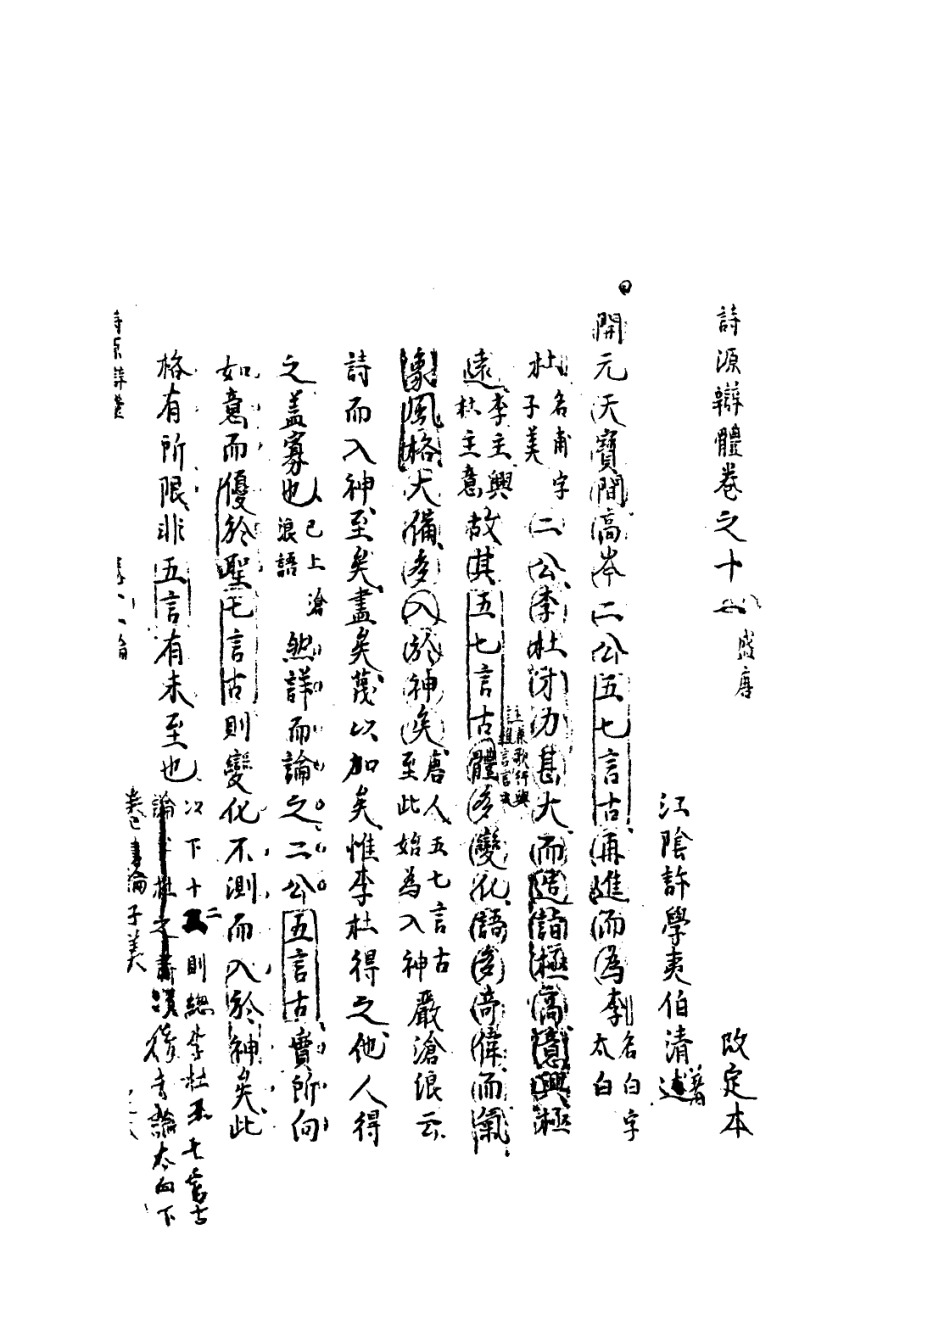 詩源辯體卷之十 盛唐 改定本
江陰許學夷伯清著
開元天寶間高岑二公五七言古再進而為李名白字太白
杜名甫字子美二公李杜才力甚大而造詣極高意興極
遠李主興杜主意故其五七言古體多變化語多奇偉而氣
象風格大備多入於神矣唐人五七言古至此始為入神嚴滄浪云
詩而入神至矣盡矣蔑以加矣惟李杜得之他人得
之蓋寡也已上滄浪語然詳而論之二公五言古實所向
如意而優於聖七言古則變化不測而入於神矣此
格有所限非五言有未至也以下十二則總李杜五七言古
論子美
後書論太白下
詩源辯體